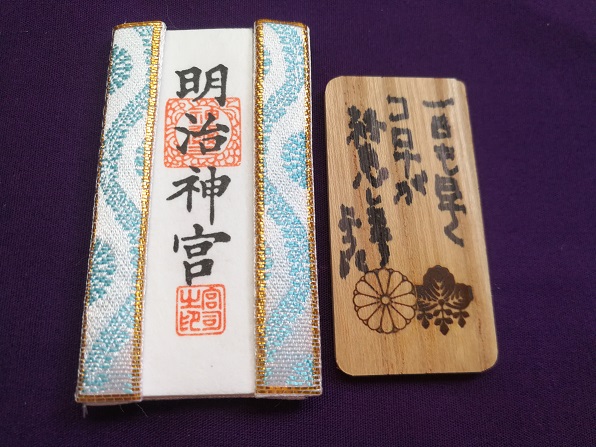 明治神宮
宮司之印
一日も早く
コロナが
終息します
ように